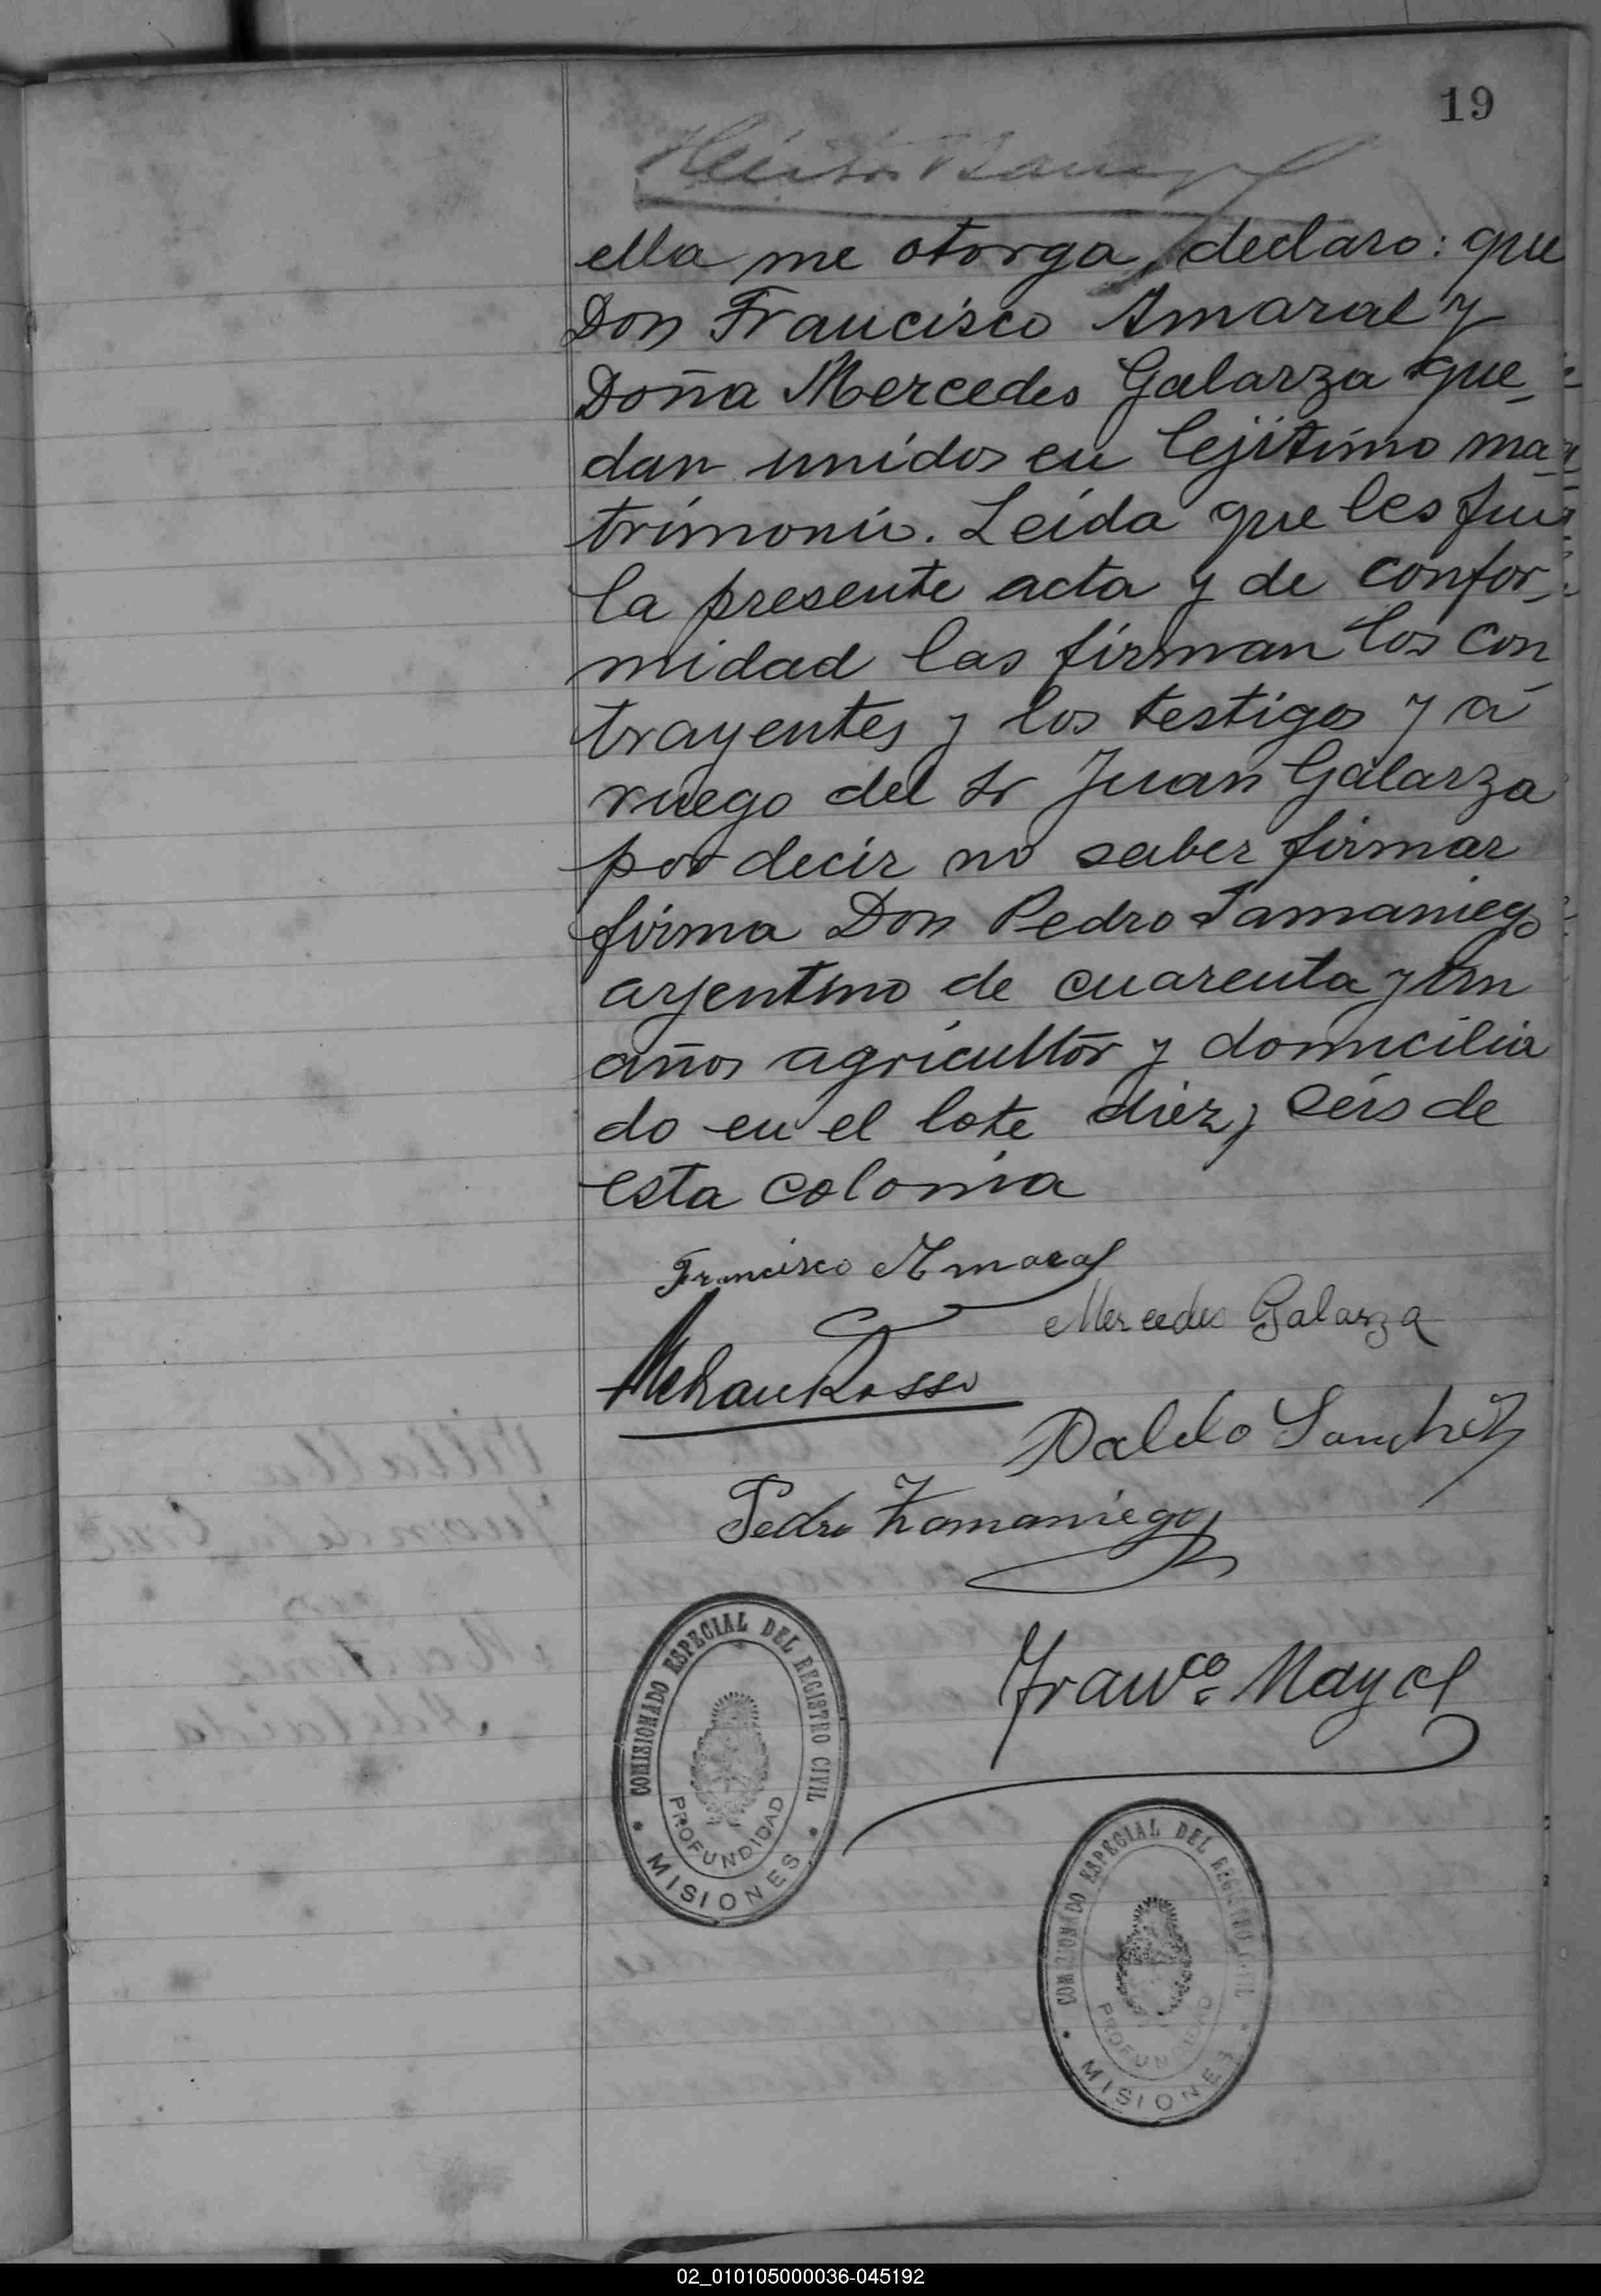 19
ella me otorga, declaro: que
Don Francisco Amaral y
Doña Mercedes Galarza que_
dan unidos en lejítimo ma_
trimonio. Leida que les fue
la presente acta y de confor_
midad las firman los con_
trayentes y los testigos y á
ruego del Sr Juan Galarza
por decir no saber firmar
firma Don Pedro Samaniego
arjentino de cuarenta y un
años agricultor y domicilia
do en el lote diez y seis de
esta colonia
Francisco Amaral
Mercedes Galarza
Rosso
Sanchez
Pedro Zamaniego
Franco. Mayol
COMISIONADO ESPECIAL DEL REGISTRO CIVIL
PROFUNDIDAD
* MISIONES *
COMISIONADO ESPECIAL DEL REGISTRO CIVIL
PROFUNDIDAD
* MISIONES *
02_010105000036-045192